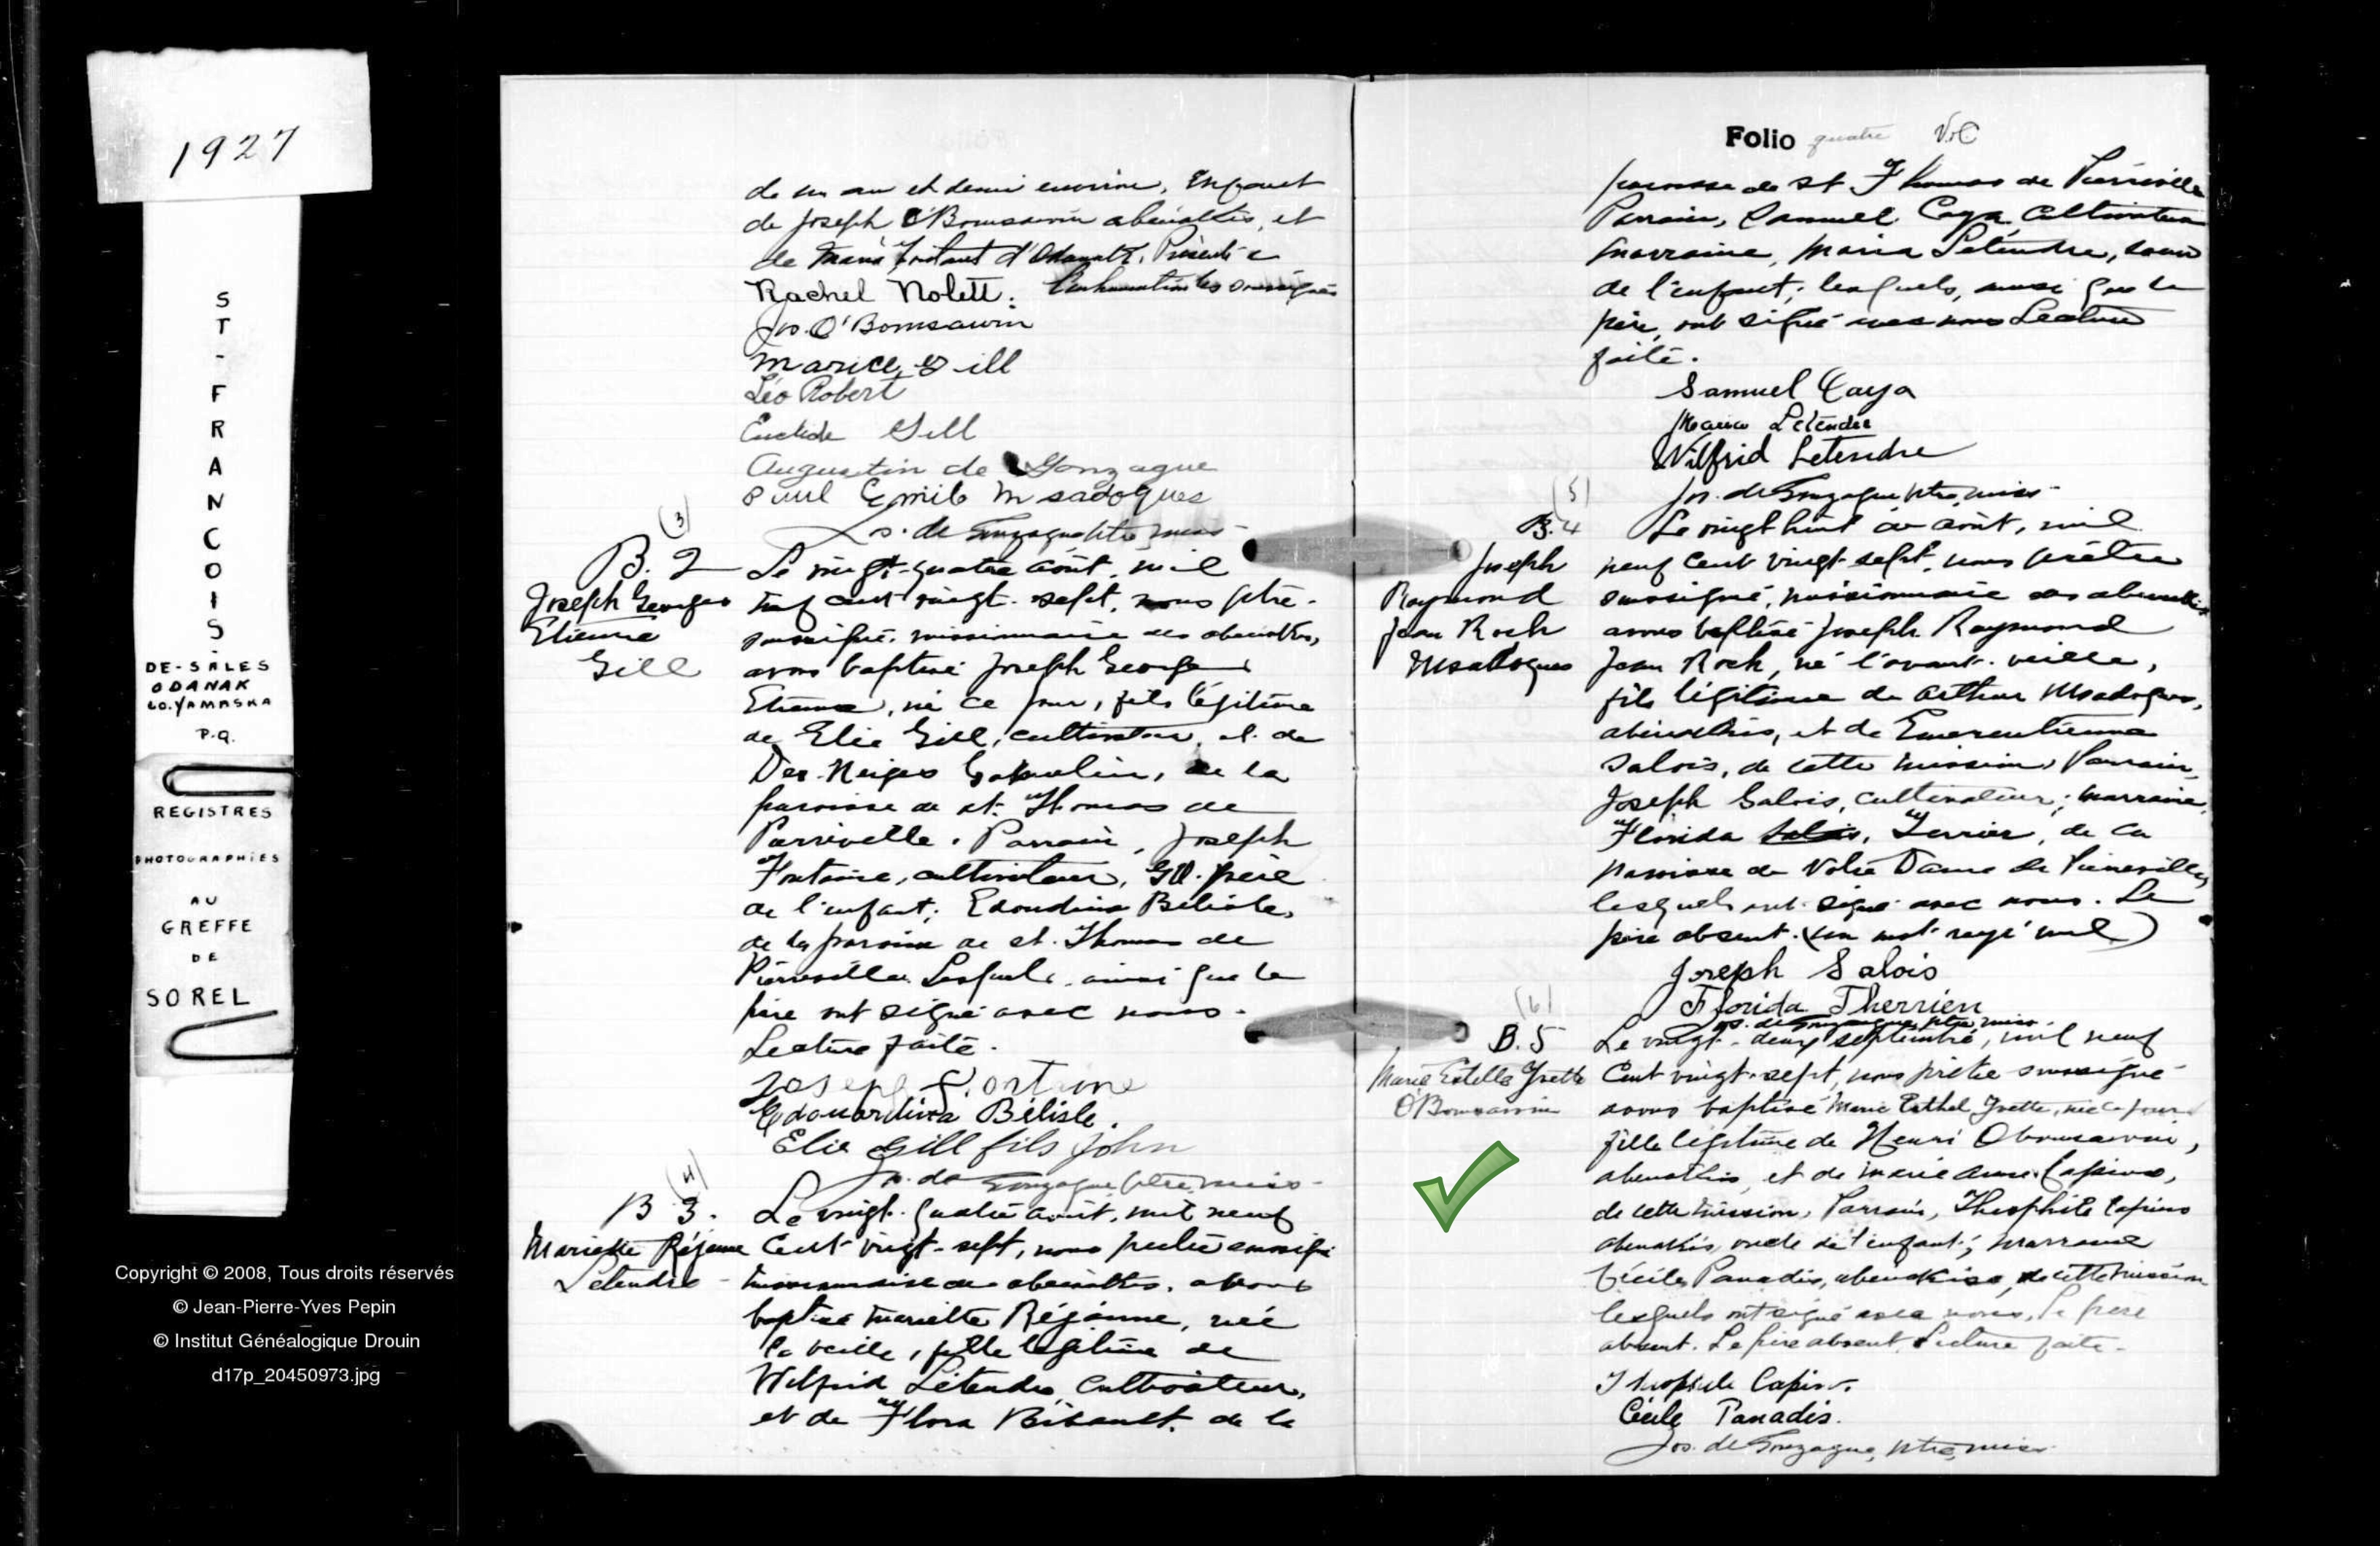 1927
ST-FRANCOIS-
DE-SALES
ODANAK
CO.YAMASKA
P.Q.
REGISTRES
PHOTOGRAPHIES
AU
GREFFE
DE
SOREL
Copyright © 2008, Tous droits réservés
© Jean-Pierre-Yves Pepin
© Institut Généalogique Drouin
d17p_20450973.jpg
de un an et demi environ, Enfant
de Joseph O'Bomsawin abénakis, et
de d'Odanak. Présents à
Rachel Nolett: l'inhumation les soussignés
Jos. O'Bomsawin
Marice Gill
Léo Robert
Euclide Gill
Augustin de Gonzague
Paul Emile Msadoques
Jos. de Gonzague ptre miss
(3)
B. 2
Joseph Georges
Etienne
Gill
Le vingt-quatre août, mil
neuf cent vingt-sept, nous ptre.
soussigné, missionnaire des abénakis,
avons baptisé Joseph Georges
Etienne, né ce jour, fils légitime
de Elie Gill, cultivateur, et de
Des-Neiges de la
paroisse de St. Thomas de
Pierreville. Parrain, Joseph
Fontaine, cultivateur, Gd. père
de l'enfant; Edoudina Bélisle,
de la paroisse de St. Thomas de
Pierreville. Lesquels, ainsi que le
père ont signé avec nous.
Lecture faite.
Joseph Fontaine
Edouardina Bélisle.
Elie Gill fils John
Jos. de Gonzague ptre miss-
(4)
B 3.
Mariette Réjanne
Létendre
Le vingt-quatre août, mil neuf
Cent vingt-sept, nous prêtre soussigné
missionnaire des abénakis, avons
baptisé Mariette Réjanne, née
la veille, fille légitime de
Wilfrid Létendre, Cultivateur,
et de Flora Ribault, de la
Folio quatre
paroisse de St Thomas de Pierreville
Parrain, Samuel Caya, Cultivateur
marraine, Maria Létendre, soeur
de l'enfant; lesquels, ainsi que le
père, ont signé avec nous Lecture
faite.
Samuel Caya
Maria Létendre
Wilfrid Letendre
Jos. de Gonzague ptre miss-
(5)
B. 4
Joseph
Raymond
Jean Roch
Msadoques
Le vingt huit août, mil
neuf cent vingt-sept, nous prêtre
soussigné, missionnaire des abénakis
avons baptisé Joseph Raymond
Jean Roch, né l'avant-veille,
fils légitime de Arthur Msadoques,
abénakis, et de Emerentienne
Salois, de cette mission, Parrain,
Joseph Salois, cultivateur; marraine,
Florida Salois, Terrien, de la
paroisse de Notre Dame de Pierreville,
lesquels ont signé avec nous. Le
père absent. (un mot rayé nul)
Joseph Salois
Florida Therrien
Jos. de Gonzague, ptre, miss.
(6)
B. 5
Marie Estelle Yvette
O'Bomsawin
Le vingt-deux septembre, mil neuf
Cent vingt-sept, nous prêtre soussigné
avons baptisé Marie Esthel Yvette, née ce jour
fille légitime de Henri Obomsawin,
abénakis, et de Marie Anne Capino,
de cette mission, Parrain, Théophile Capino
abénakis, oncle de l'enfant; marraine
Cécile Panadis, abénakise, de cette mission
lesquels ont signé avec nous, le père
absent. Le père absent. Lecture faite.
Théophile Capino.
Cécile Panadis.
Jos. de Gonzague, ptre, miss.